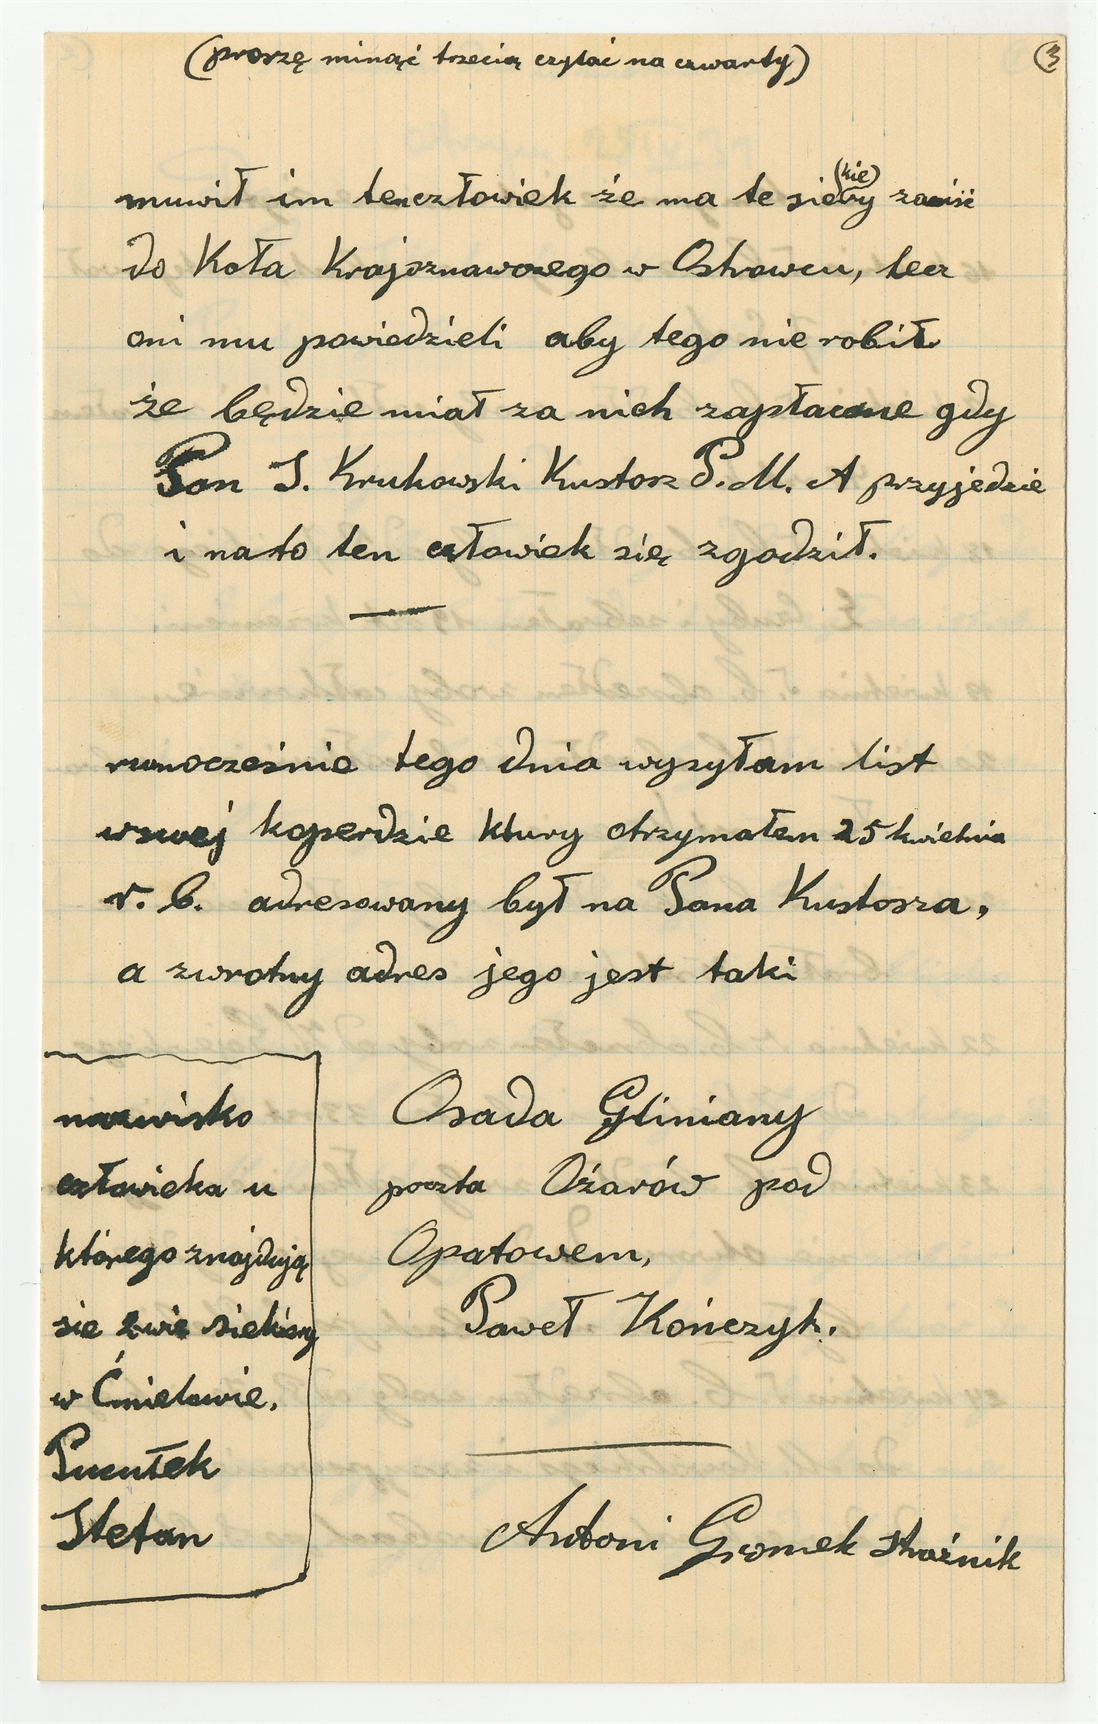 (proszę minąć trzecią czytać na czwarty)
3
muwił im tenczłowiek że ma te sie(kie)ry zaniść
do Koła Krajoznawczego w Ostrowcu, lecz
oni mu powiedzieli aby tego nie robił.
że będzie miał za nich zapłacone gdy
Pan S. Krukowski Kustosz P.M. A przyjedzie
i nato ten człowiek się zgodził.
rwnocześnie tego dnia wysyłam list
wswej koperdzie ktury otrzymałem 25 kwietnia
r. b. adresowany był na Pana Kustosza,
a zwrotny adres jego jest taki
Osada Gliniany
poczta Ożarów pod
Opatowem,
Paweł Kończyk.
nazwisko
człowieka u
którego znajdują
sie dwie siekiery
w Ćmielowie.
Pucułek
Stefan
Antoni Gromek strażnik